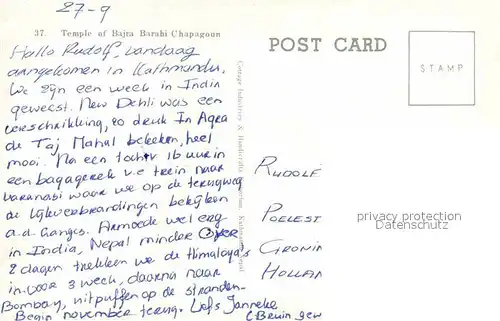 27-9
37. Temple of Bajra Barahi Chapagoun
Hallo Rudolf, vandaag
aangekomen in Kathmandu,
We zijn een week in India
geweest. New Dehli was een
verschrikking, zo druk In Agra
de Taj Mahal bekeken, heel
mooi. Na een tocht v 16 uur in
een bagagerek v.e trein naar
varanasi waar we op de terugweg
de lijkverbrandingen bekijken
a.d. Ganges. Armoede wel erg
in India, Nepal minder Over
2 dagen trekken we de Himalaya's
in. voor 3 week, daarna naar
Bombay, uitpuffen op de stranden.
Begin november terug. Liefs Janneke
(Bruin
Cottage Industries & Handicrafts Emporium, Kathmandu, Nepal
POST CARD
STAMP
RUDOLF
POELEST
GRONIN
HOLLAN
privacy protection
Datenschutz